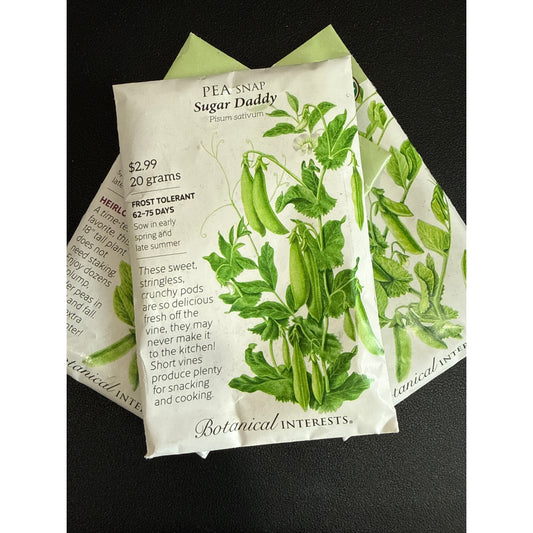 PEA SNAP
Sugar Daddy
Pisum sativum
$2.99
20 grams
FROST TOLERANT
62–75 DAYS
Sow in early
spring and
late summer
These sweet,
stringless,
crunchy pods
are so delicious
fresh off the
vine, they may
never make it
to the kitchen!
Short vines
produce plenty
for snacking
and cooking.
Botanical INTERESTS®
late
HEIRLO
A time-te
favorite, thi
18" tall plant
does not
need staking.
njoy dozens
plump,
er peas in
and fall.
xtra
nter!
Botanical
INTERESTS